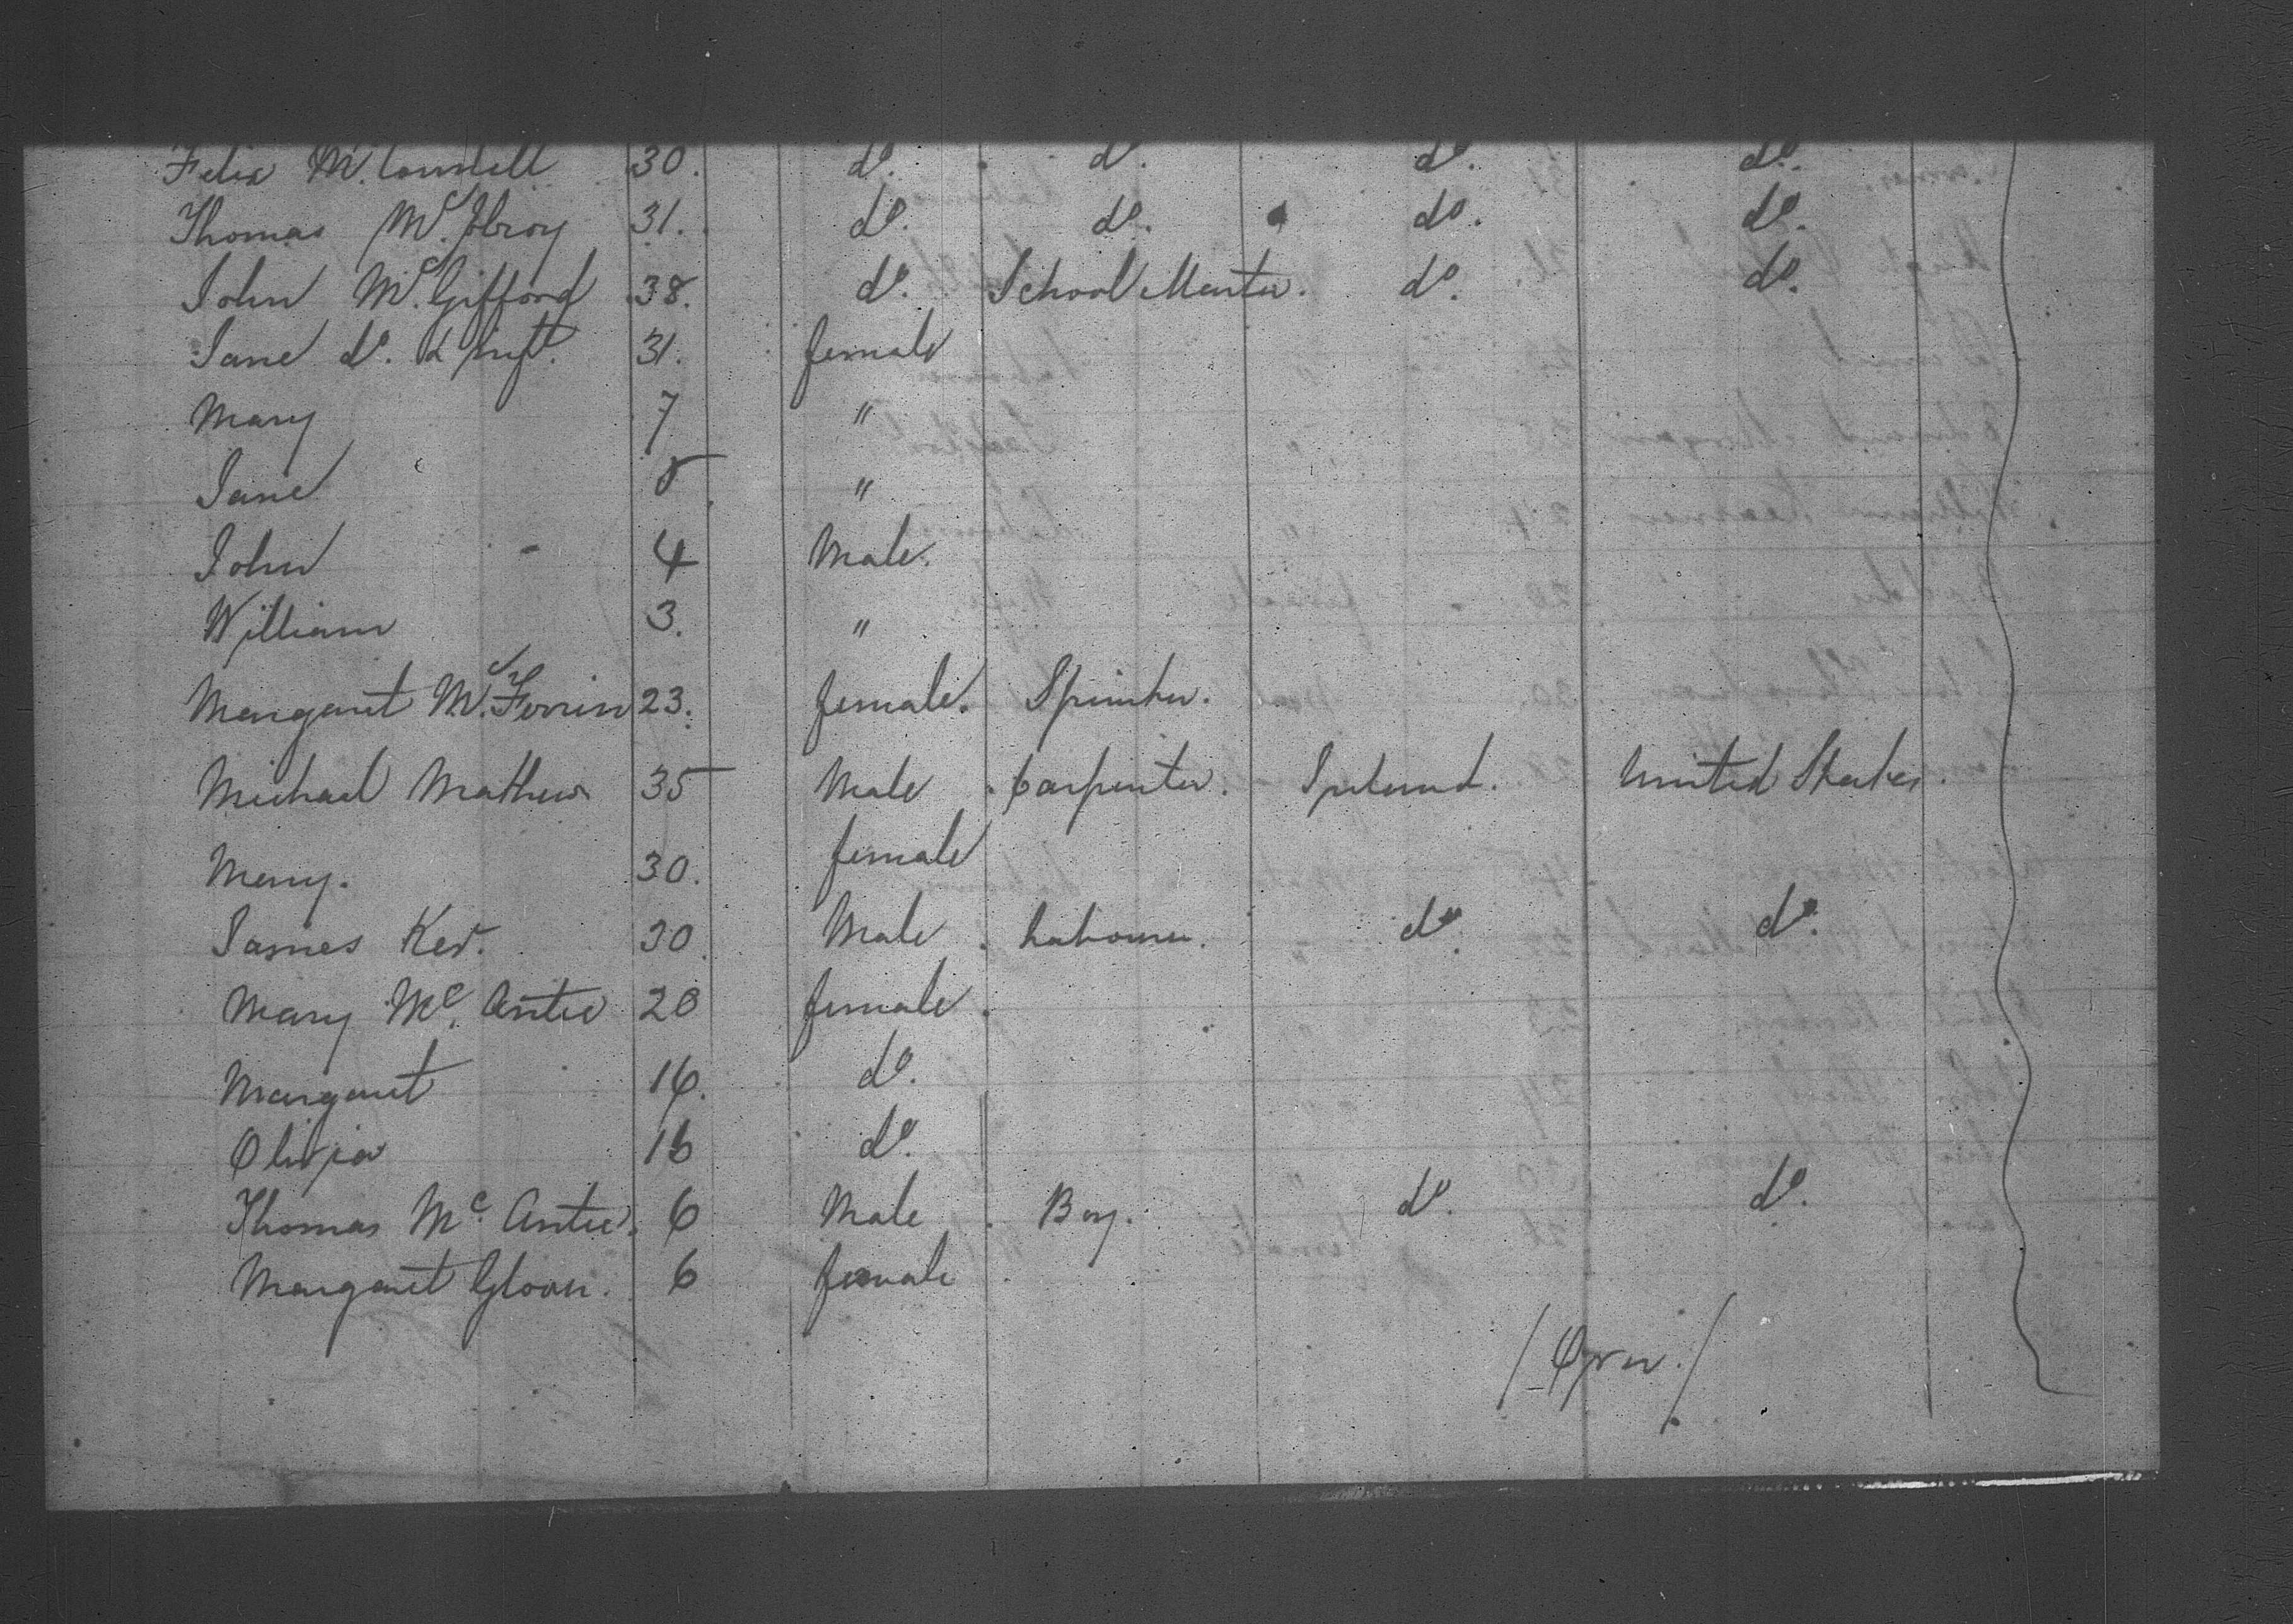 Felix Mc. Connell 30. do. do. do. do.
Thomas Mc. Ilroy 31. do. do. do. do.
John Mc. Gifford 38. do. School Master. do. do.
Jane do. & inft. 31. female
Mary 7 "
Jane 5 "
John 4 Male.
William 3. "
Margaret Mc. Ferrin 23. female. Spinster.
Michael Mathews 35 Male Carpenter. Ireland. United States.
Mary. 30. female
James Ker. 30 Male Labourer. do. do.
Mary Mc. Antee 20 female.
Margaret 16. do.
Olivia 16 do.
Thomas Mc. Antee. 6 Male Boy. do. do.
Margaret Gloan. 6 female